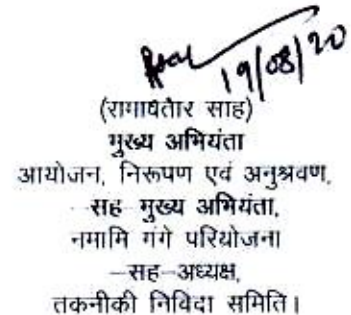 19/08/20
(रामावतार साह)
मुख्य अभियंता
आयोजन, निरूपण एवं अनुश्रवण,
-सह मुख्य अभियंता,
नमामि गंगे परियोजना
-सह-अध्यक्ष,
तकनीकी निविदा समिति।